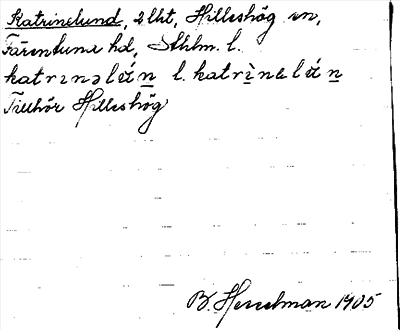 Katrinelund, 2 lht, Hilleshög sn,
Färentuna hd, Sthlm. l.
katrı̵nəlɛ́n̲ l. katrı̵̀nəlɛ́n̲
Tillhör Hilleshög
B. Hesselman 1905